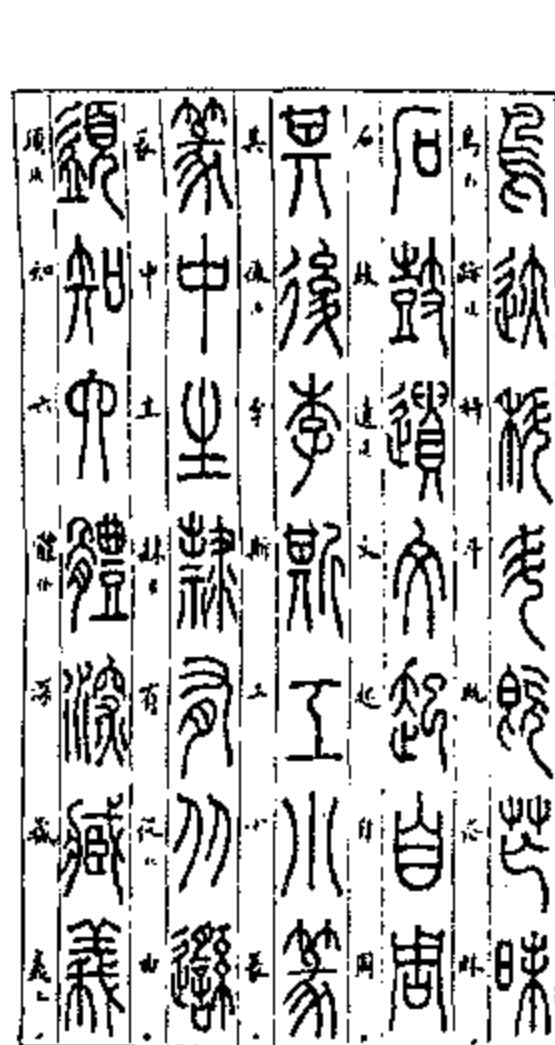 鳥跡科斗既茫昧
鳥跡科斗既茫昧
石鼓遺文起自周
石鼓遺文起自周
其後李斯工小篆
其後李斯工小篆
篆中生隸有从繇
篆中生隸有從由
䇓知六體深藏義
須知六體深藏義